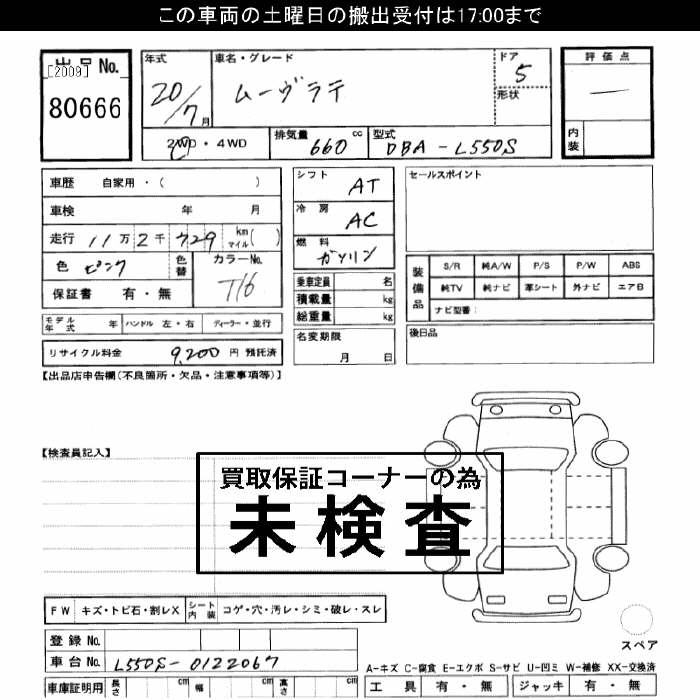 この車両の土曜日の搬出受付は17:00まで
出品No.
[2009]
80666
年式
20/7月
車名・グレード
ムーヴラテ
ドア
5
形状
評価点
—
内装
2WD・4WD
排気量 660 cc
型式 DBA-L550S
車歴 自家用・( )
車検 年 月
走行 11万2千729 km マイル( )
色 ピンク
色替
カラーNo.
T16
保証書 有・無
モデル年式 年
ハンドル 左・右
ディーラー・並行
リサイクル料金 9,200 円 預託済
シフト AT
冷房 AC
燃料 ガソリン
乗車定員 名
積載量 kg
総重量 kg
名変期限
月 日
セールスポイント
装備品
S/R 純A/W P/S P/W ABS
純TV 純ナビ 革シート 外ナビ エアB
ナビ型番:
後日品
【出品店申告欄(不良箇所・欠品・注意事項等)】
【検査員記入】
買取保証コーナーの為
未検査
FW キズ・トビ石・割レX
シート内装 コゲ・穴・汚レ・シミ・破レ・スレ
登録No.
車台No. L550S-0122067
車庫証明用 長さ cm 幅 cm 高さ cm
スペア
A-キズ C-腐食 E-エクボ S-サビ U-凹ミ W-補修 XX-交換済
工具 有・無 ジャッキ 有・無